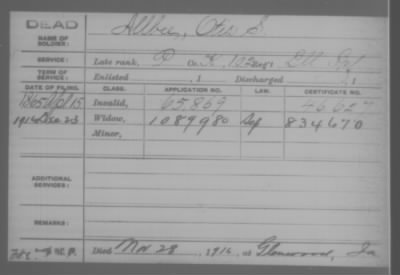 DEAD
NAME OF SOLDIER: Allbee, Otis S.
SERVICE: Late rank, P Co. K, 122 Regt. Ill. Inf
TERM OF SERVICE: Enlisted , 1 Discharged , 1
DATE OF FILING. CLASS. APPLICATION NO. LAW. CERTIFICATE NO.
1865 Apl 15 Invalid, 65.869 46.627
1916 Dec 23 Widow, 1089980 834670
Minor,
ADDITIONAL SERVICES:
REMARKS:
Died Nov. 28, 1916, at Glenwood, Ia